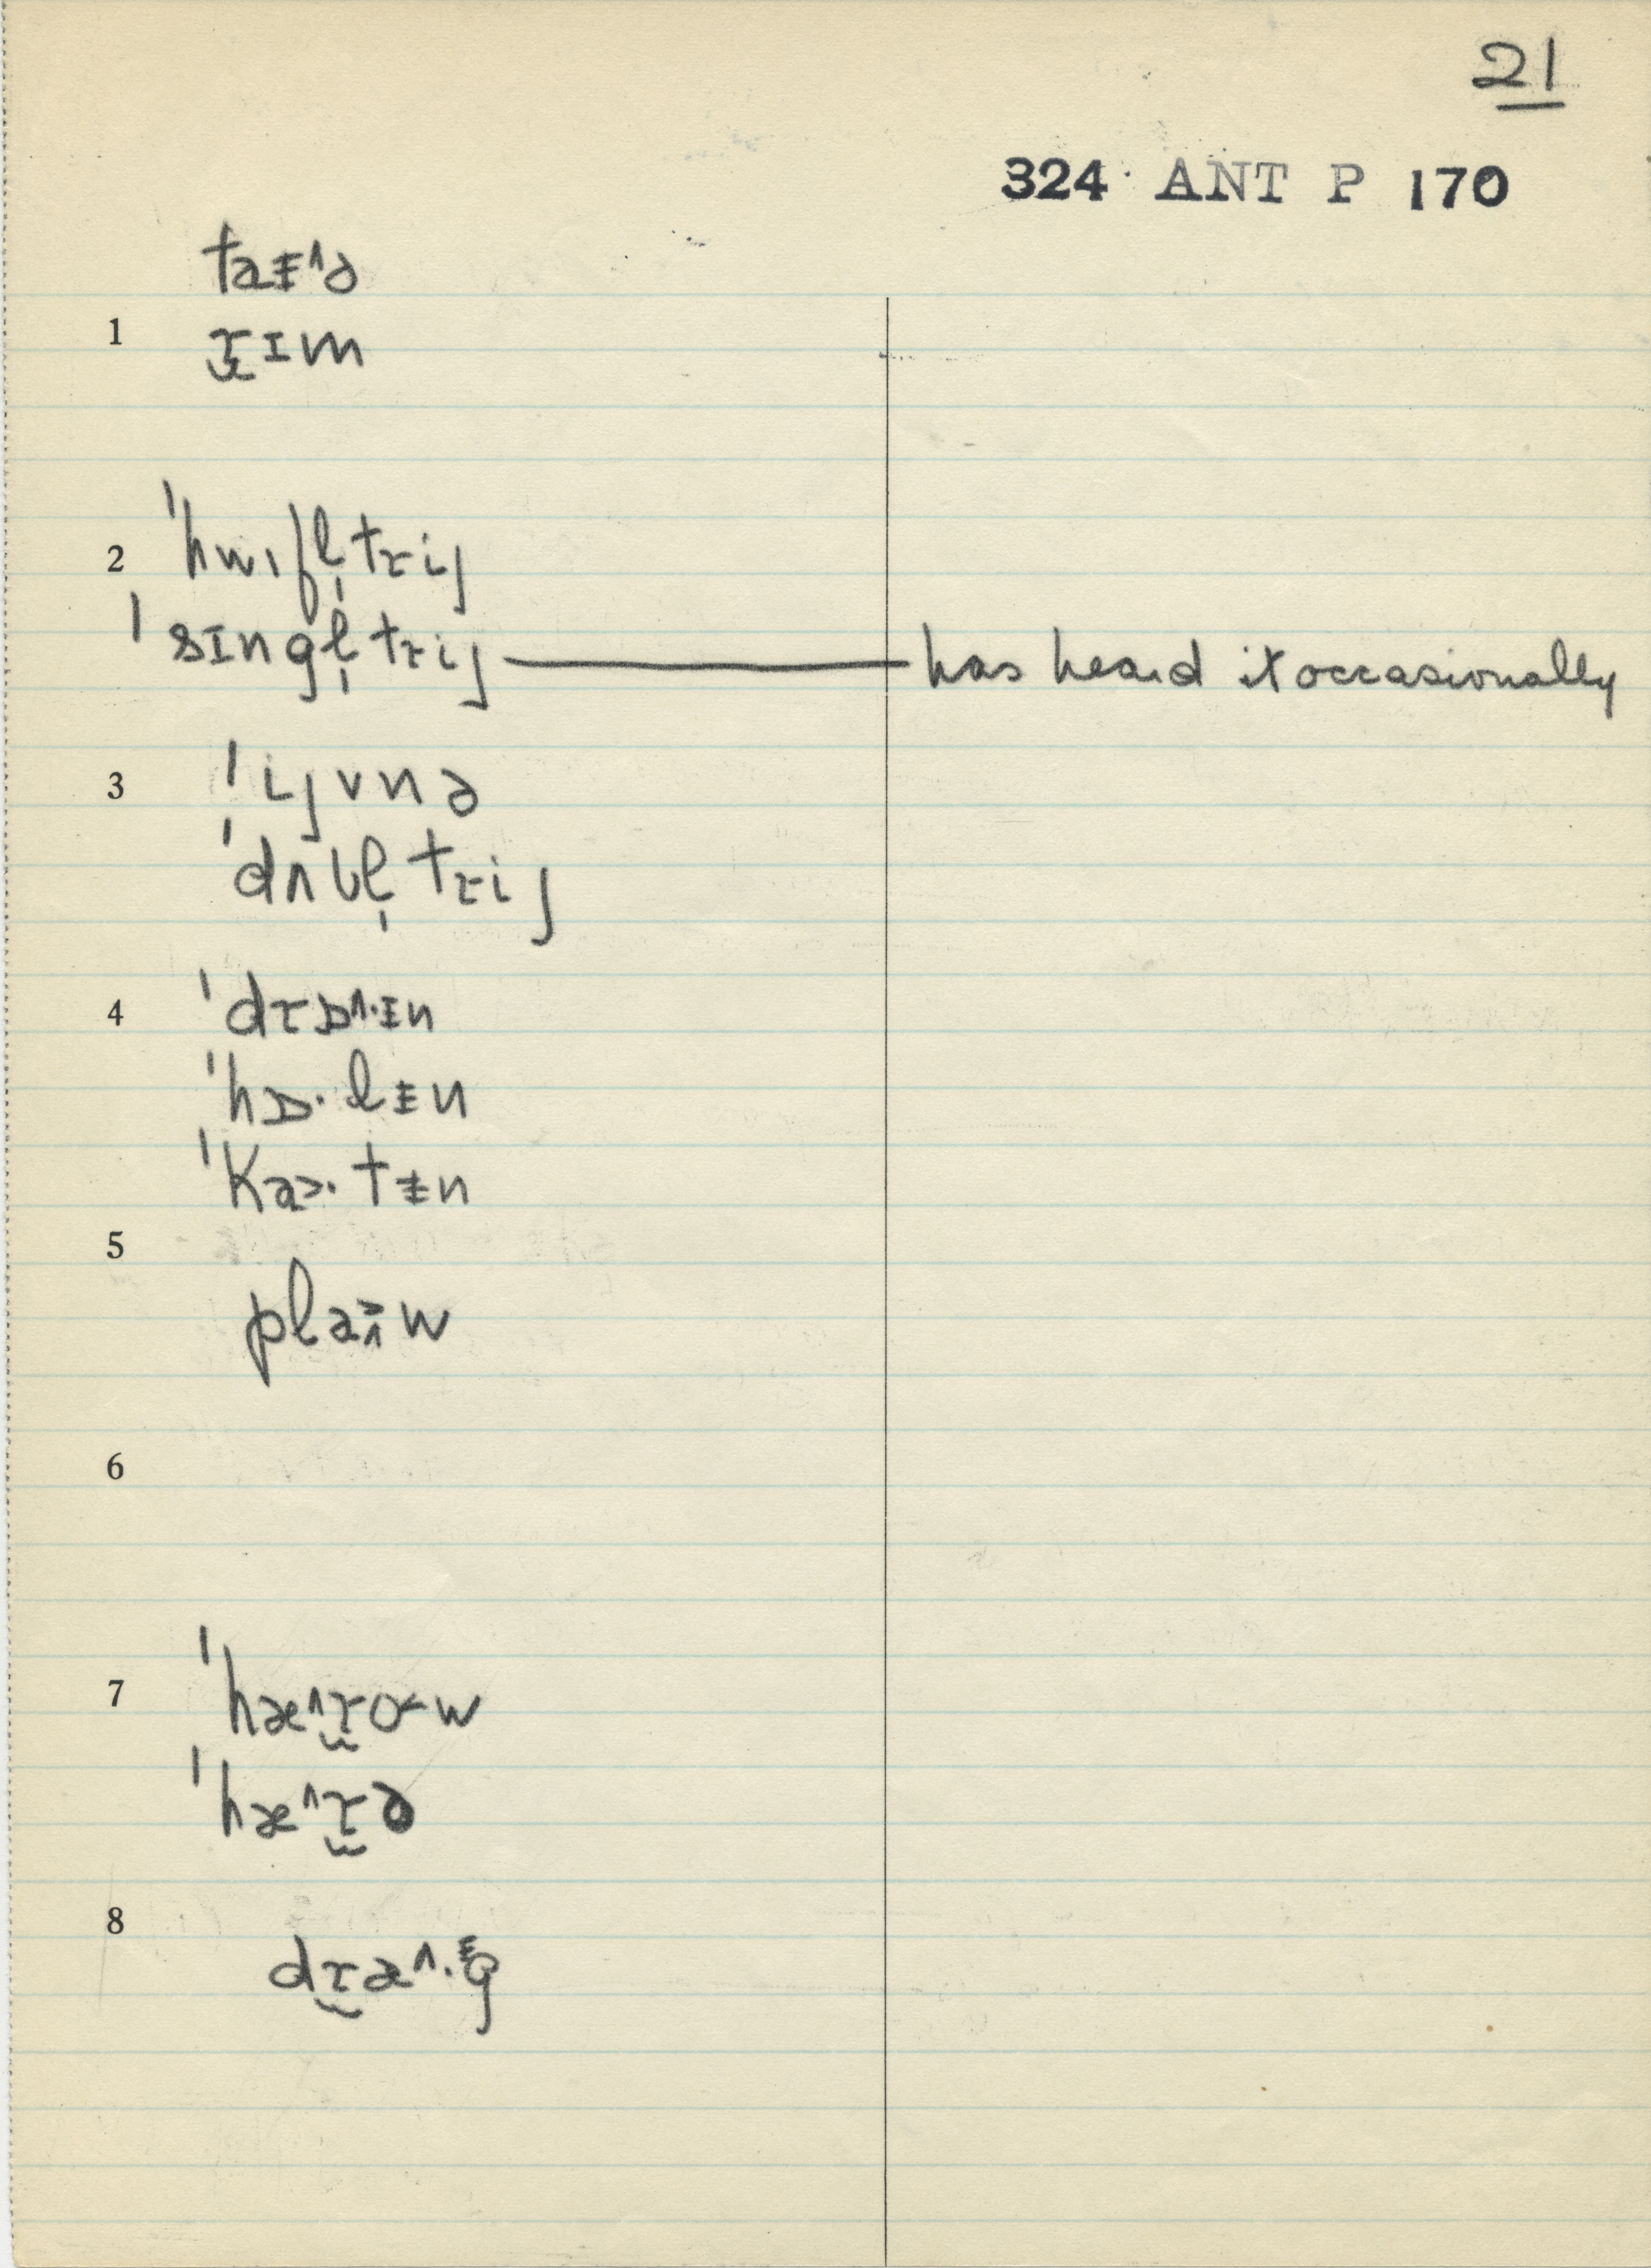 21
324 ANT P 170
taᵻ^ə
1 ɹ̬ɪm
2 ˈhwɪfl̩tɹij
ˈsɪngl̩tɹij — has heard it occasionally
3 ˈijvnə
ˈdʌbl̩tɹij
4 ˈdɹɒ^·ɪn
ˈhɒ·lᵻn
ˈka>·tᵻn
5
pla>^·w
6
7 ˈhæ^ɹ̬o<w
ˈhæ^ɹ̬ə
8
dɹ̬æ^·ᵻg